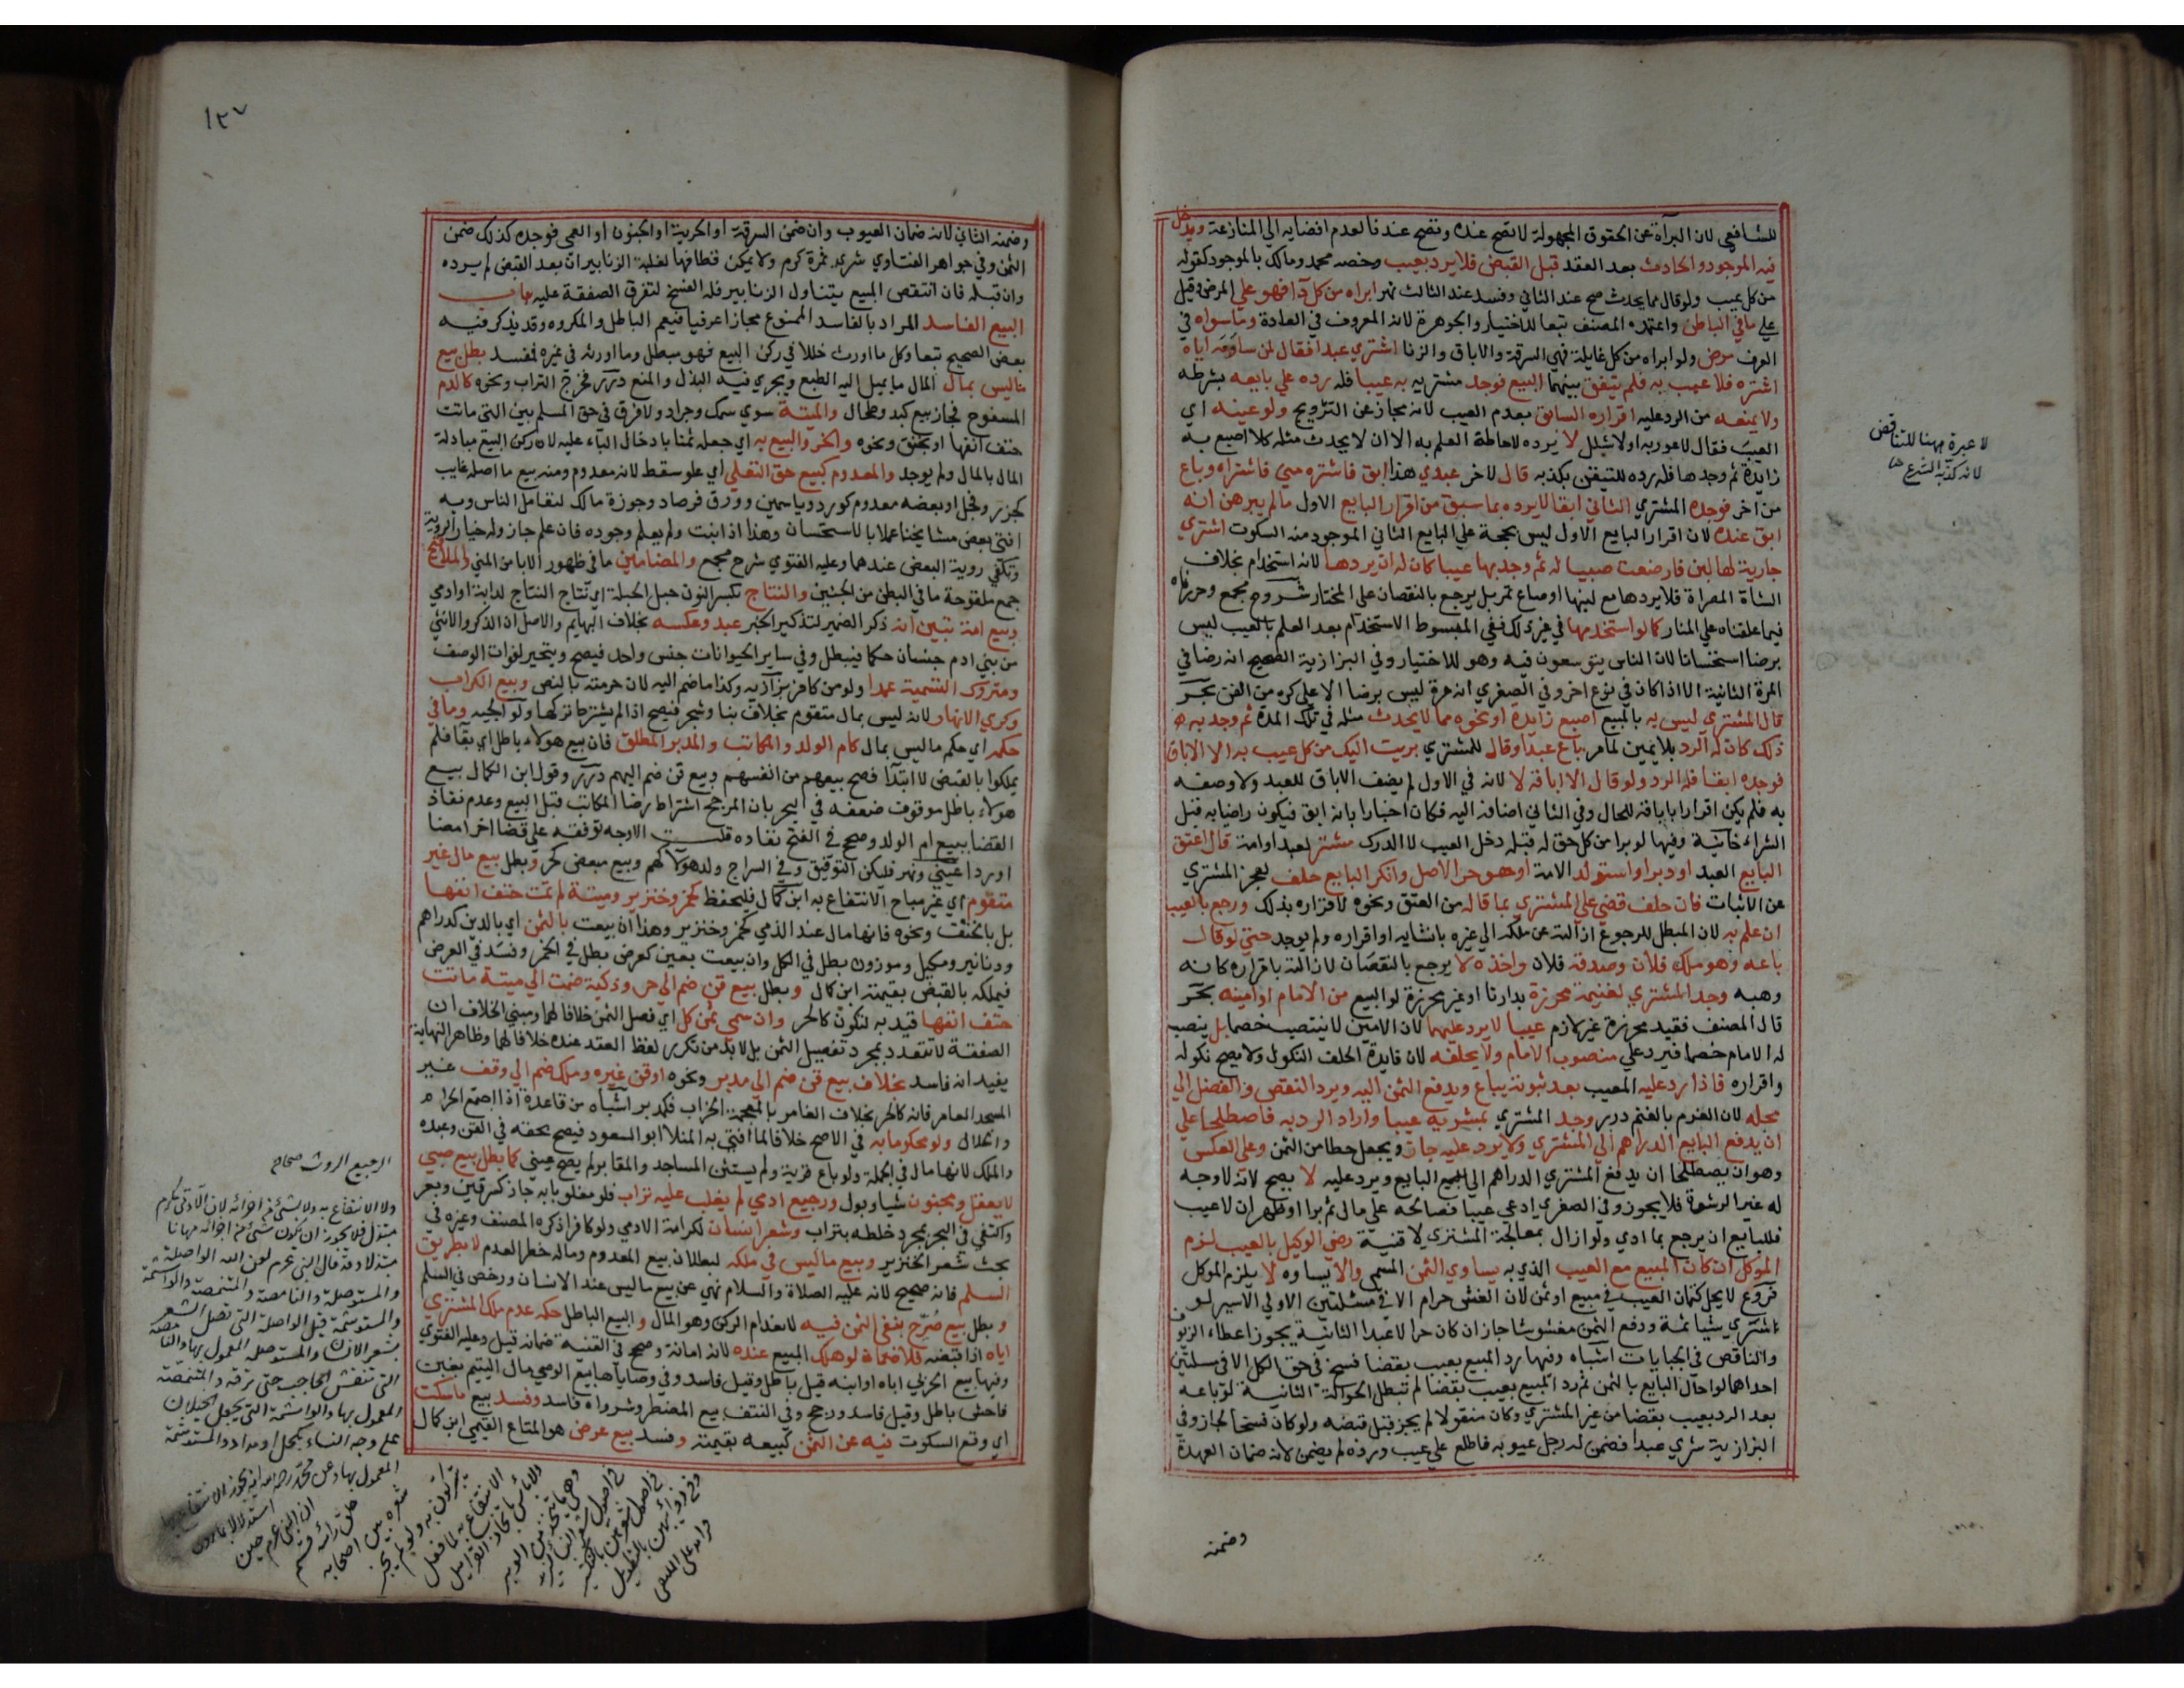 للشافعي لان البرآة عن الحقوق المجهولة لا تصح عنده وتصح عندنا لعدم افضايه الي المنازعة ويدخل
فيه الموجود والحادث بعد العقد قبل القبض فلا يرد بعيب وخصه محمد ومالك بالموجود كقوله
من كل عيب ولو قال مما يحدث صح عند الثاني وفسد عند الثالث نهر ابراه من كل دآ فهو علي المرض وقيل
علي ما في الباطن واعتمده المصنف تبعا للاختيار والجوهرة لانه المعروف في العادة وما سواه في
العرف مرض ولو ابراه من كل غايلة فهي السرقة والاباق والزنا اشتري عبدا فقال لمن ساومه اياه
اشتره فلا عيب به فلم يتفق بينهما البيع فوجد مشتريه به عيبا فله رده علي بايعه بشرطه
ولا يمنعه من الرد عليه اقراره السابق بعدم العيب لانه مجاز عن الترويج ولو عينه اي
العيب فقال لا عور به اولا شلل لا يرده لاحاطة العلم به الا ان لا يحدث مثله كلا اصبع به
زايدة ثم وجدها فله رده للتيقن بكذبه قال لاخر عبدي هذا ابق فاشتره مني فاشتراه وباع
من اخر فوجده المشتري الثاني ابقا لا يرده بما سبق من اقرار البايع الاول ما لم يبرهن انه
ابق عنده لان اقرار البايع الاول ليس بحجة علي البايع الثاني الموجود منه السكوت اشتري
جارية لها لبن فارضعت صبيا له ثم وجد بها عيبا كان له ان يردها لانه استخدام بخلاف
الشاة المصراة فلا يردها مع لبنها او صاع تمر بل يرجع بالنقصان علي المختار شروح مجمع وحررناه
فيما علقناه علي المنار كما لو استخدمها في غير ذلك ففي المبسوط الاستخدام بعد العلم بالعيب ليس
برضا استحسانا لان الناس يتوسعون فيه وهو للاختيار وفي البزازية الصحيح انه رضا في
المرة الثانية الا اذا كان في نوع اخر وفي الصغري انه مرة ليس برضا الا علي كره من القن بحر
قال المشتري ليس به بالمبيع اصبع زايدة او نحوه مما لا يحدث مثله في تلك المدة ثم وجد به
ذلك كان له الرد بلا يمين لما مر باع عبدا وقال للمشتري بريت اليك من كل عيب به الا الاباق
فوجده ابقا فله الرد ولو قال الا اباقه لا لانه في الاول لم يضف الاباق للعبد ولا وصفه
به فلم يكن اقرارا باباقه للحال وفي الثاني اضافه اليه فكان اخبارا بانه ابق فيكون راضيا به قبل
الشراء خانية وفيها لو برا من كل حق له قبله دخل العيب لا الدرك مشتر لعبد او امة قال اعتق
البايع العبد او دبر او استولد الامة او هو حر الاصل وانكر البايع حلف لعجز المشتري
عن الاثبات فان حلف قضي علي المشتري بما قاله من العتق ونحوه لاقراره بذلك ورجع بالعيب
ان علم به لان المبطل للرجوع ازالته عن ملكه الي غيره بانشايه او اقراره ولم يوجد حتي لو قال
باعه وهو ملك فلان وصدقه فلان واخذه لا يرجع بالنقصان لازالته باقراره كانه
وهبه وجد المشتري لغنيمة محرزة بدارنا او غير محرزة لو البيع من الامام او امينه بحر
قال المصنف فقيد محرزة غير لازم عيبا لا يرد عليهما لان الامين لا ينتصب خصما بل ينصب
له الامام خصما فيرد علي منصوب الامام ولا يحلفه لان فايدة الحلف النكول ولا يصح نكوله
واقراره فاذا رد عليه المعيب بعد ثبوته يباع ويدفع الثمن اليه ويرد النقص والفضل الي
محله لان الغرم بالغنم درر وجد المشتري بمشريه عيبا واراد الرد به فاصطلحا علي
ان يدفع البايع الدراهم الي المشتري ولا يرد عليه جاز ويجعل حطا من الثمن وعلي العكس
وهو ان يصطلحا ان يدفع المشتري الدراهم الي البايع ويرد عليه لا يصح لانه لا وجه
له غير الرشوة فلا يجوز وفي الصغري ادعي عيبا فصالحه علي مال ثم برا او ظهر ان لا عيب
فللبايع ان يرجع بما ادي ولو ازال بمعالجة المشتري لا قنية رضي الوكيل بالعيب لزم
الموكل ان كان المبيع مع العيب الذي به يساوي الثمن المسمي والا يساوه لا يلزم الموكل
فروع لا يحل كتمان العيب في مبيع او ثمن لان الغش حرام الا في مسئلتين الاولي الاسير لو
اشتري شيا ثمة ودفع الثمن مغشوشا جاز ان كان حرا لا عبدا الثانية يجوز اعطاء الزيوف
والناقص في الجبايات اشباه وفيها رد المبيع بعيب بقضا فسخ في حق الكل الا في مسئلتين
احداهما لو احال البايع بالثمن ثم رد المبيع بعيب بقضا لم تبطل الحوالة الثانية لو باعه
بعد الرد بعيب بقضا من غير المشتري وكان منقولا لم يجز قبل قبضه ولو كان فسخا لجاز وفي
البزازية شري عبدا فضمن له رجل عيوبه فاطلع علي عيب ورده لم يضمن لانه ضمان العهدة
وضمنه
لا عبرة ههنا للتناقض
لانه كذبه الشرع
١٢٧
وضمنه الثاني لانه ضمان العيوب وان ضمن السرقة او الحرية او الجنون او العمي فوجده كذلك ضمن
الثمن وفي جواهر الفتاوي شري ثمرة كرم ولا يمكن قطافها لغلبة الزنابير ان بعد القبض لم يرده
وان قبله فان انتقص المبيع بتناول الزنابير فله الفسخ لتفرق الصفقة عليه باب
البيع الفاسد المراد بالفاسد الممنوع مجازا عرفيا فيعم الباطل والمكروه وقد يذكر فيه
بعض الصحيح تبعا وكل ما اورث خللا في ركن البيع فهو مبطل وما اورثه في غيره فمفسد بطل بيع
ما ليس بمال المال ما يميل اليه الطبع ويجري فيه البذل والمنع درر فخرج التراب ونحوه كالدم
المسفوح فجاز بيع كبد وطحال والميتة سوي سمك وجراد ولا فرق في حق المسلم بين التي ماتت
حتف انفها او بخنق ونحوه والحر والبيع به اي جعله ثمنا بادخال الباء عليه لان ركن البيع مبادلة
المال بالمال ولم يوجد والمعدوم كبيع حق التعلي اي علو سقط لانه معدوم ومنه بيع ما اصله غايب
كجزر وفجل او بعضه معدوم كورد وياسمين وورق فرصاد وجوزه مالك لتعامل الناس وبه
افتي بعض مشايخنا عملا بالاستحسان وهذا اذا نبت ولم يعلم وجوده فان علم جاز وله خيار الروية
وتكفي روية البعض عندهما وعليه الفتوي شرح مجمع والمضامين ما في ظهور الابا من المني والملاقيح
جمع ملقوحة ما في البطن من الجنين والنتاج بكسر النون حبل الحبلة اي نتاج النتاج لدابة او ادمي
وبيع امة تبين انه ذكر الضمير لتذكير الخبر عبد وعكسه بخلاف البهايم والاصل ان الذكر والانثي
من بني ادم جنسان حكما فيبطل وفي ساير الحيوانات جنس واحد فيصح ويتخير لفوات الوصف
ومتروك التسمية عمدا ولو من كافر بزازية وكذا ما ضم اليه لان حرمته بالنص وبيع الكراب
وكري الانهار لانه ليس بمال متقوم بخلاف بنا وشجر فيصح اذا لم يشترط تركها ولوالجية وما في
حكمه اي حكم ما ليس بمال كام الولد والمكاتب والمدبر المطلق فان بيع هولاء باطل اي بقا فلم
يملكوا بالقبض لا ابتدآ فصح بيعهم من انفسهم وبيع قن ضم اليهم درر وقول ابن الكمال بيع
هولاء باطل موقوف ضعفه في البحر بان المرجح اشتراط رضا المكاتب قبل البيع وعدم نفاذ
القضا ببيع ام الولد وصحح في الفتح نفاده قلت الاوجه توقفه علي قضا اخر امضا
او ردا عيني ونهر فليكن التوفيق وفي السراج ولد هولاء كهم وبيع مبعض كحر وبطل بيع مال غير
متقوم اي غير مباح الانتفاع به ابن كمال فليحفظ كخمر وخنزير وميتة لم تمت حتف انفها
بل بالخنق ونحوه فانها مال عند الذمي كخمر وخنزير وهذا ان بيعت بالثمن اي بالدين كدراهم
ودنانير ومكيل وموزون بطل في الكل وان بيعت بعين كعرض بطل في الخمر وفسد في العرض
فيملكه بالقبض بقيمته ابن كمال وبطل بيع قن ضم الي حر وذكية ضمت الي ميتة ماتت
حتف انفها قيد به لتكون كالحر وان سمي ثمن كل اي فصل الثمن خلافا لهما ومبني الخلاف ان
الصفقة لا تتعدد بمجرد تفصيل الثمن بل لا بد من تكرر لفظ العقد عنده خلافا لهما وظاهر النهاية
يفيد انه فاسد بخلاف بيع قن ضم الي مدبر ونحوه او قن غيره وملك ضم الي وقف غير
المسجد العامر فانه كالحر بخلاف الغامر بالمعجمة الخراب فكمدبر اشباه من قاعدة اذا اجتمع الحرام
والحلال ولو محكوما به في الاصح خلافا لما افتي به المنلا ابو السعود فيصح بحصته في القن وعبده
والملك لانها مال في الجملة ولو باع قرية ولم يستثن المساجد والمقابر لم يصح عيني كما بطل بيع صبي
لا يعقل ومجنون شيا وبول ورجيع ادمي لم يغلب عليه تراب فلو مغلوبا به جاز كسرقين وبعر
واكتفي في البحر بمجرد خلطه بتراب وشعر انسان لكرامة الادمي ولو كافرا ذكره المصنف وغيره في
بحث شعر الخنزير وبيع ما ليس في ملكه لبطلان بيع المعدوم وماله خطر العدم لا بطريق
السلم فانه صحيح لانه عليه الصلاة والسلام نهي عن بيع ما ليس عند الانسان ورخص في السلم
وبطل بيع صرح بنفي الثمن فيه لانعدام الركن وهو المال والبيع الباطل حكمه عدم ملك المشتري
اياه اذا قبضه فلا ضمان لو هلك المبيع عنده لانه امانة وصحح في القنية ضمانه قيل وعليه الفتوي
وفيها بيع الحربي اباه او ابنه قيل باطل وقيل فاسد وفي وصاياها بيع الوصي مال اليتيم بغبن
فاحش باطل وقيل فاسد ورجح وفي النتف بيع المضطر وشراوه فاسد وفسد بيع ما سكت
اي وقع السكوت فيه عن الثمن كبيعه بقيمته وفسد بيع عرض هو المتاع القيمي ابن كمال
الرجيع الروث صحاح
ولا الانتفاع به ولا بشئ من اجزائه لان الآدمي مكرم
مبتذل فلا يجوز ان يكون شئ من اجزائه مهانا
مبتذلا وقد قال النبي عم لعن الله الواصلة
والمستوصلة والنامصة والمتنمصة والواشمة
والمستوشمة قيل الواصلة التي تصل الشعر
بشعر الانسان والمستوصلة المعمول بها والنامصة
التي تنقش الحاجب حتى ترقه والمتنمصة
المعمول بها والواشمة التي تجعل الخيلان
على وجه النساء بكحل او مداد والمستوشمة
المعمول بها وعن محمد رحمه الله انه يجوز الانتفاع بها
استدلالا بما روي
ان النبي عم حين
حلق رأسه قسم
شعره بين اصحابه
يتبركون به ولو لم يجز
الانتفاع به لما فعل
ولا باس باتخاذ القراميل
وهي ما يتخذ من الوبر